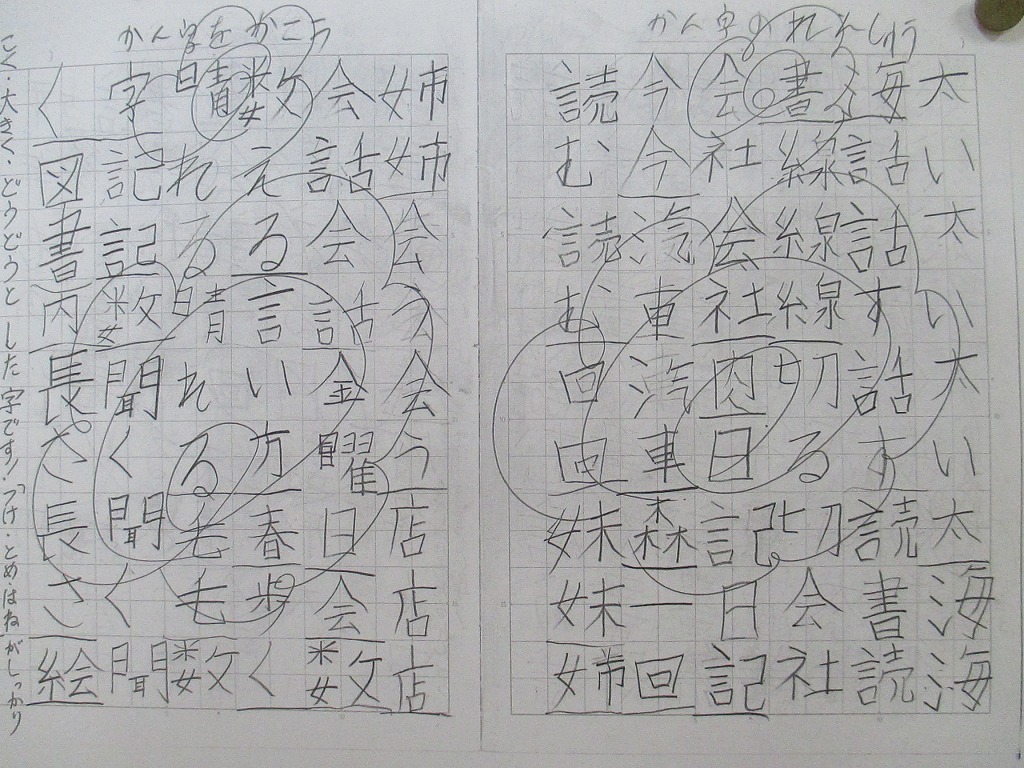 かん字のれんしゅう
太い太い太い太海海
海話話す話す読書読
書線線線切る切会社
会社会社肉日記日記
今今汽車汽車森一回
読む読む回回妹妹姉
かん字をかこう
姉姉会う会う店店店
会話会話金曜日会数
数える言い方春歩く
晴れる晴れる毛毛数
字記記数聞く聞く聞
く図書内長さ長さ絵
こく・大きく・どうどうとした字です!「つけ・とめ・はね」がしっかり